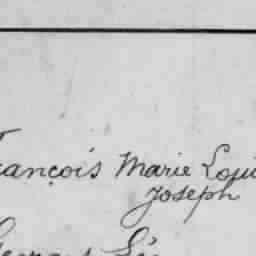 François Marie Loui
Joseph